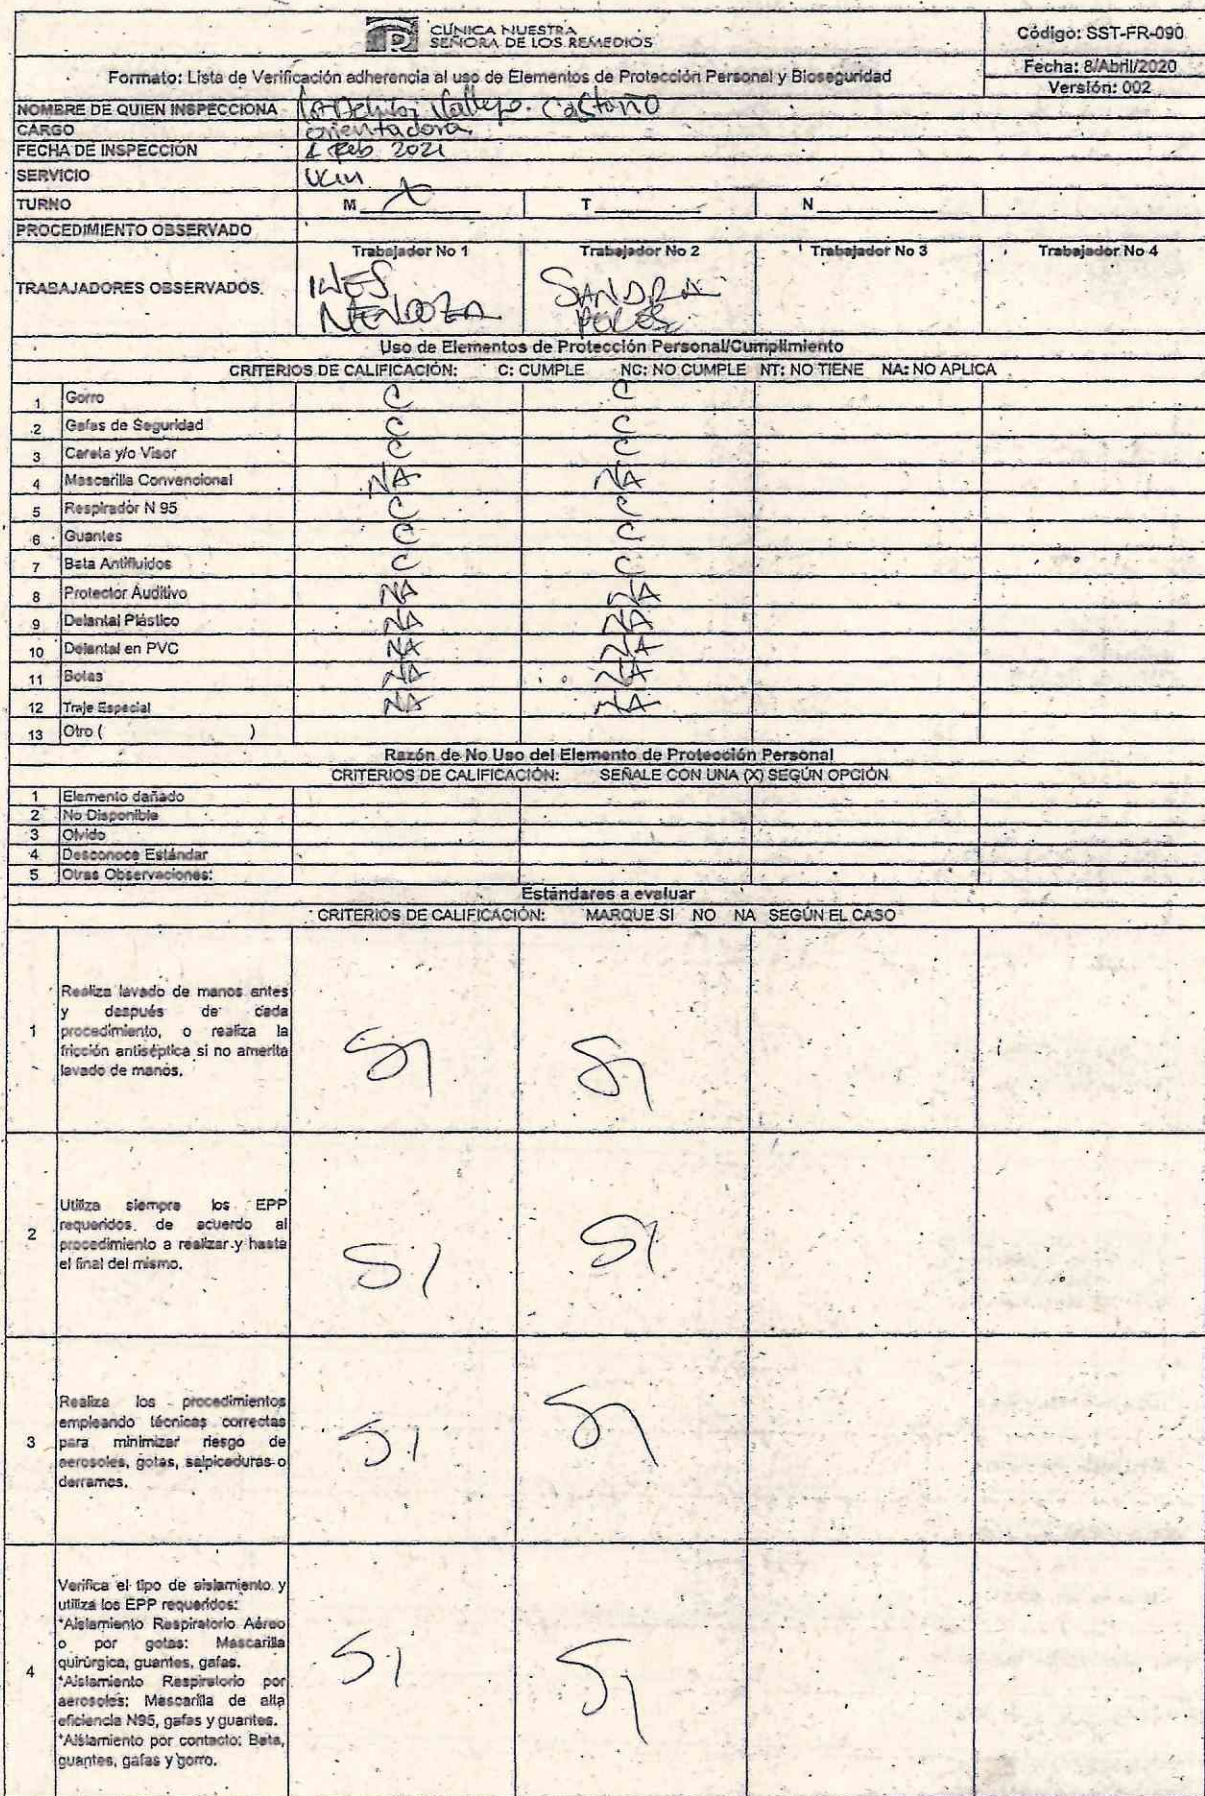 CLÍNICA NUESTRA
SEÑORA DE LOS REMEDIOS
Código: SST-FR-090
Formato: Lista de Verificación adherencia al uso de Elementos de Protección Personal y Bioseguridad
Fecha: 8/Abril/2020
Versión: 002
NOMBRE DE QUIEN INSPECCIONA Vallejo Castaño
CARGO orientadora
FECHA DE INSPECCIÓN 1 Feb 2021
SERVICIO
TURNO M X T N
PROCEDIMIENTO OBSERVADO
Trabajador No 1 Trabajador No 2 Trabajador No 3 Trabajador No 4
TRABAJADORES OBSERVADOS.
INES SANDRA
MENDOZA
Uso de Elementos de Protección Personal/Cumplimiento
CRITERIOS DE CALIFICACIÓN: C: CUMPLE NC: NO CUMPLE NT: NO TIENE NA: NO APLICA
1 Gorro C C
2 Gafas de Seguridad C C
3 Careta y/o Visor C C
4 Mascarilla Convencional NA NA
5 Respirador N 95 C C
6 Guantes C C
7 Bata Antifluidos C C
8 Protector Auditivo NA NA
9 Delantal Plástico NA NA
10 Delantal en PVC NA NA
11 Botas NA NA
12 Traje Especial NA NA
13 Otro ( )
Razón de No Uso del Elemento de Protección Personal
CRITERIOS DE CALIFICACIÓN: SEÑALE CON UNA (X) SEGÚN OPCIÓN
1 Elemento dañado
2 No Disponible
3 Olvido
4 Desconoce Estándar
5 Otras Observaciones:
Estándares a evaluar
CRITERIOS DE CALIFICACIÓN: MARQUE SI NO NA SEGÚN EL CASO
Realiza lavado de manos antes
y después de cada
1 procedimiento, o realiza la
fricción antiséptica si no amerita
lavado de manos.
SI SI
Utiliza siempre los EPP
2 requeridos de acuerdo al
procedimiento a realizar y hasta
el final del mismo.
SI SI
Realiza los procedimientos
empleando técnicas correctas
3 para minimizar riesgo de
aerosoles, gotas, salpicaduras o
derrames.
SI SI
Verifica el tipo de aislamiento y
utiliza los EPP requeridos:
*Aislamiento Respiratorio Aéreo
o por gotas: Mascarilla
quirúrgica, guantes, gafas.
4 *Aislamiento Respiratorio por
aerosoles: Mascarilla de alta
eficiencia N95, gafas y guantes.
*Aislamiento por contacto: Bata,
guantes, gafas y gorro.
Si Si